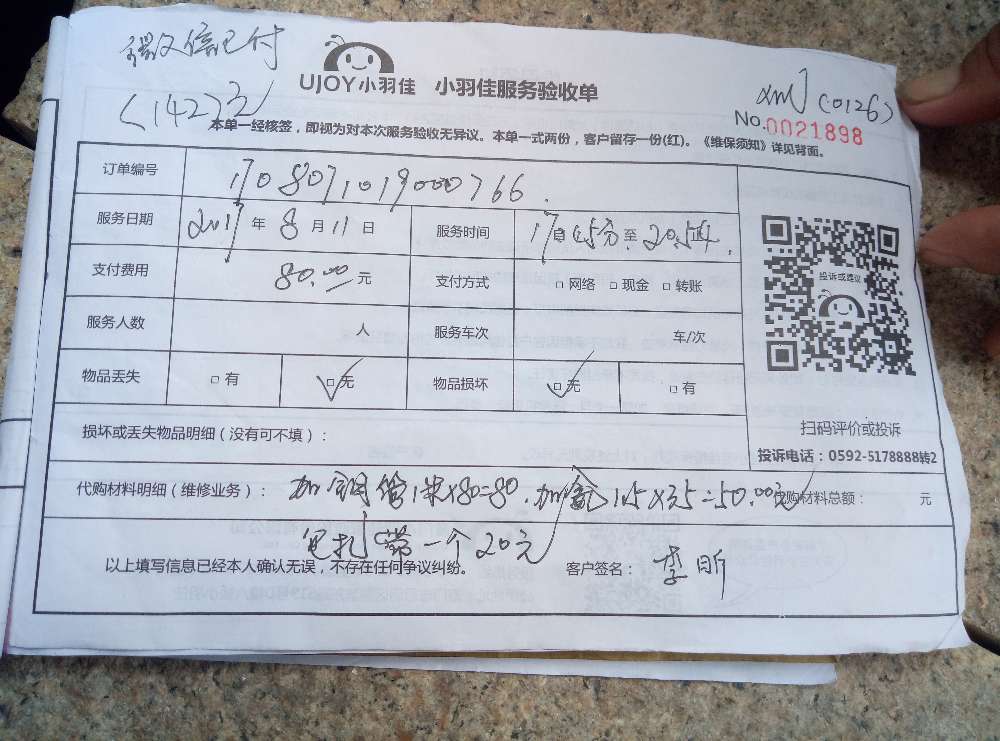 微信已付
(142)元
UJOY小羽佳 小羽佳服务验收单
xmJ(0126)
No.0021898
本单一经核签，即视为对本次服务验收无异议。本单一式两份，客户留存一份(红)。《维保须知》详见背面。
订单编号 1708071019000766.
服务日期 2017年8月11日 服务时间 17 45分至20.54.
支付费用 80.00元 支付方式 □网络 □现金 □转账
服务人数 人 服务车次 车/次
物品丢失 □有 □无 物品损坏 □无 □有
投诉或建议
扫码评价或投诉
投诉电话：0592-5178888转2
损坏或丢失物品明细（没有可不填）：
代购材料明细（维修业务）： 加铜管1米×80=80. 加氟 =50.00元 代购材料总额： 元
包扎带一个20元
以上填写信息已经本人确认无误，不存在任何争议纠纷。 客户签名：李昕